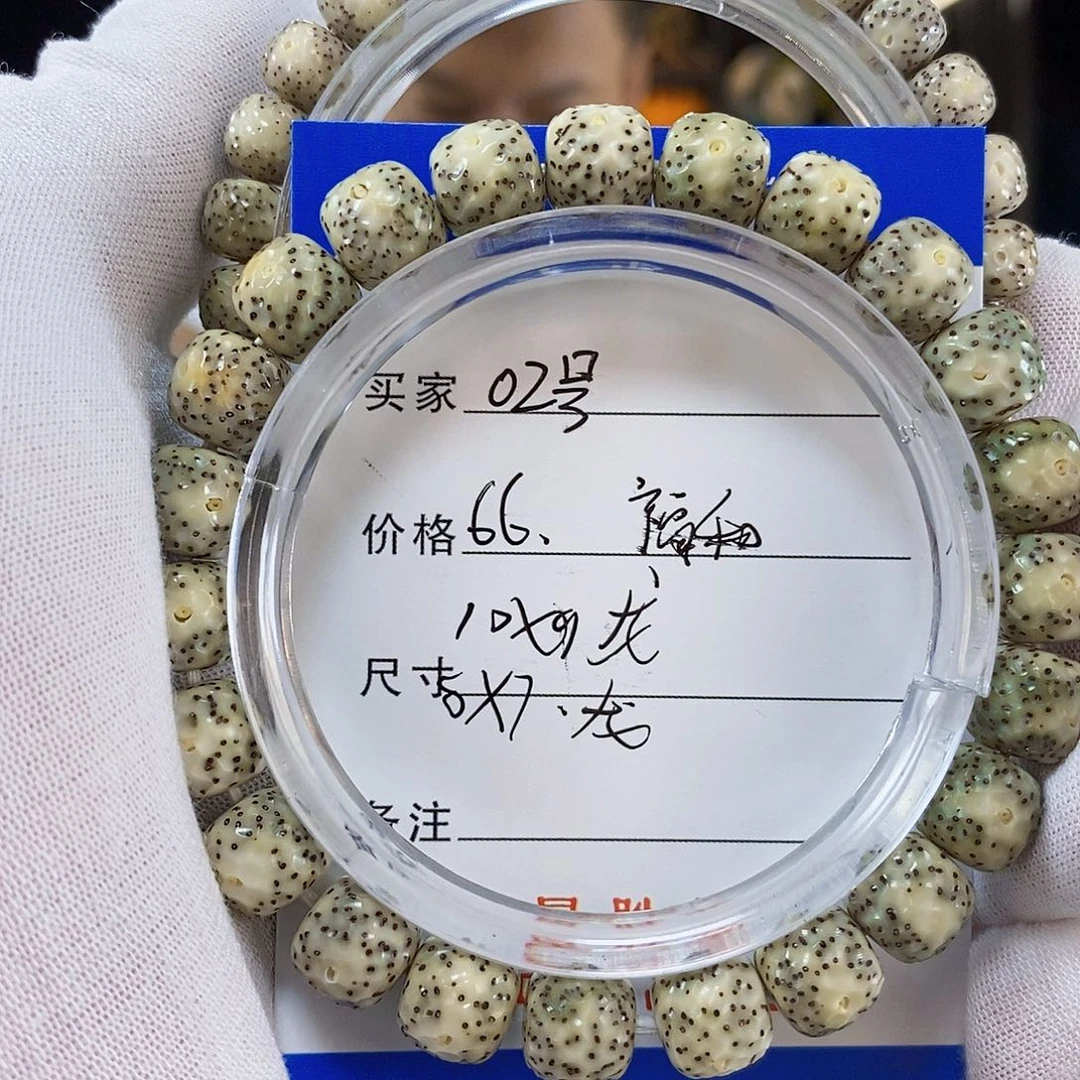 买家 02号
价格 66、
10X9 龙
尺寸 8X7、龙
备注